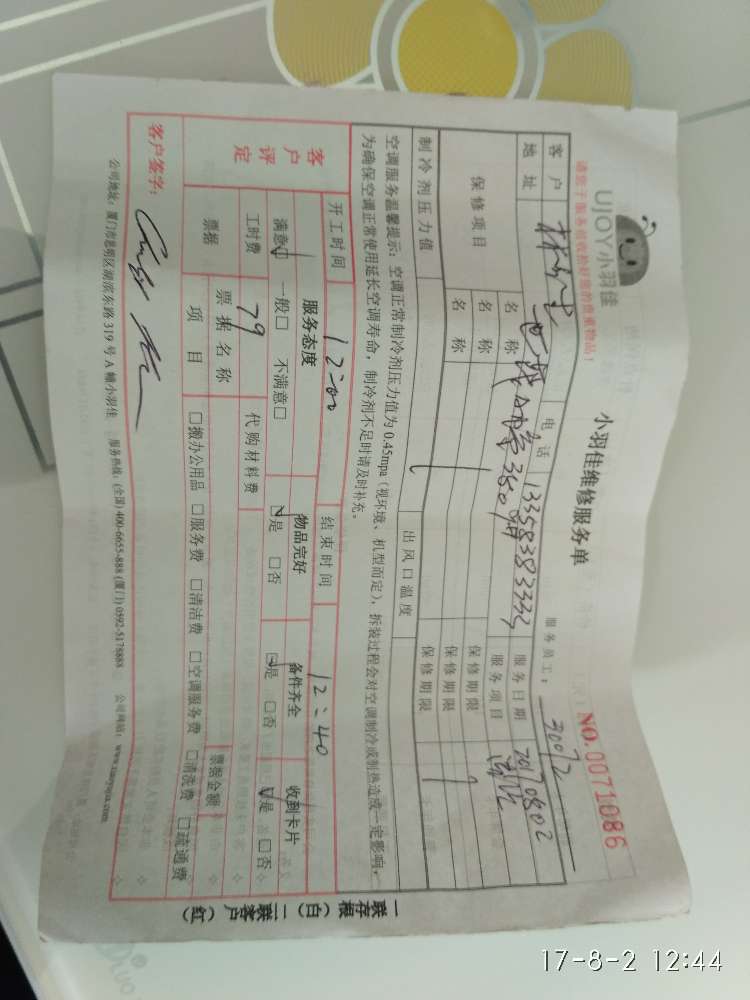 UJOY小羽佳
小羽佳维修服务单
NO.0071086
请您于服务前收拾好您的贵重物品!
服务员工:30072
客户 电话 13358383333 服务日期 20170802
地址 服务项目
保修项目 名称 保修期限
名称 保修期限
名称 保修期限
制冷剂压力值 出风口温度
空调服务温馨提示:空调正常制冷剂压力值为0.45mpa(视环境、机型而定),拆装过程会对空调制冷或制热造成一定影响,
为确保空调正常使用延长空调寿命,制冷剂不足时请及时补充。
开工时间 12:00 结束时间 12:40
客户评定
服务态度 物品完好 备件齐全 收到卡片
满意 一般□ 不满意□ 是 □否 是 □否 是 □否
工时费 79 代购材料费
票据 票据名称 票据金额
项目 □搬办公用品 □服务费 □清洁费 □空调服务费 □清洗费 □疏通费
客户签字:
公司地址:厦门市思明区湖滨东路319号A幢小羽佳 服务热线:(全国)400-6655-888(厦门)0592-5178888 公司网站:www.xmyujia.com
一存根(白)二联客户(红)
17-8-2 12:44